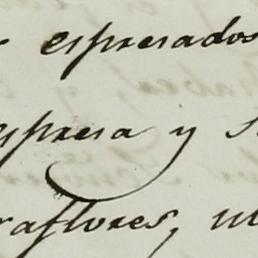 espresados
espresa y s
raflores, u